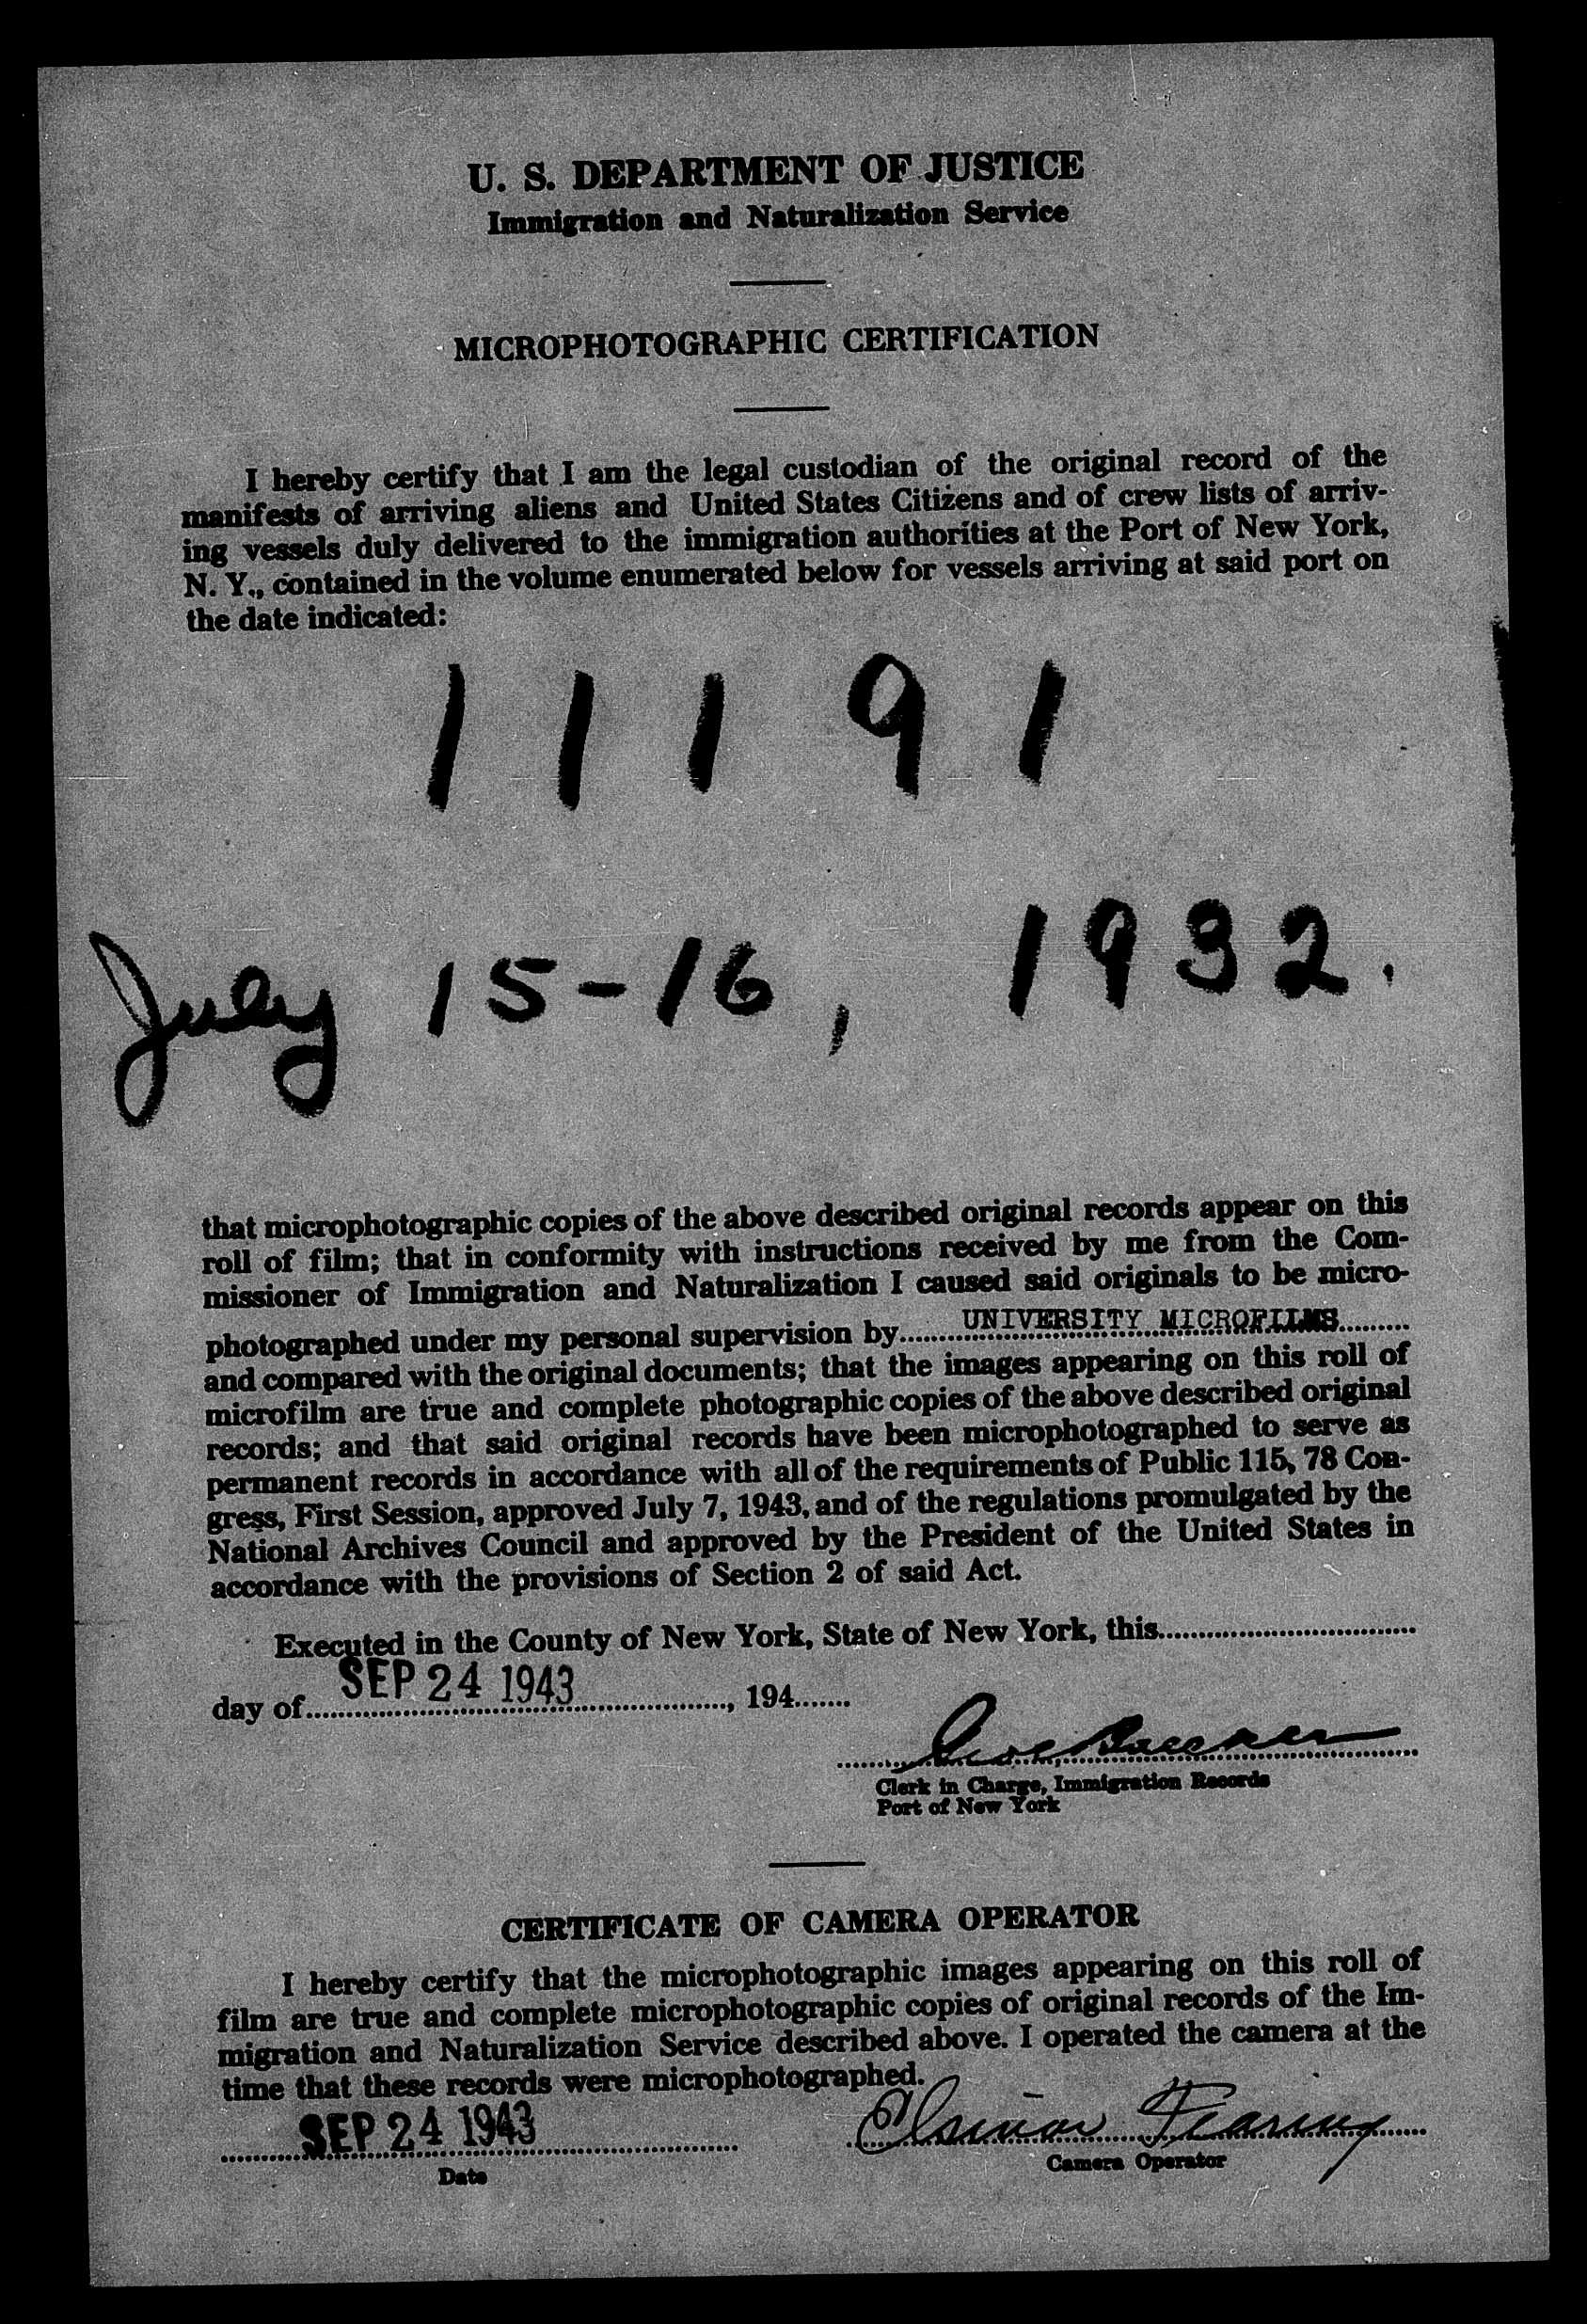 U. S. DEPARTMENT OF JUSTICE
Immigration and Naturalization Service
MICROPHOTOGRAPHIC CERTIFICATION
I hereby certify that I am the legal custodian of the original record of the
manifests of arriving aliens and United States Citizens and of crew lists of arriv-
ing vessels duly delivered to the immigration authorities at the Port of New York,
N. Y., contained in the volume enumerated below for vessels arriving at said port on
the date indicated:
11191
July 15-16, 1932.
that microphotographic copies of the above described original records appear on this
roll of film; that in conformity with instructions received by me from the Com-
missioner of Immigration and Naturalization I caused said originals to be micro-
photographed under my personal supervision by UNIVERSITY MICROFILMS
and compared with the original documents; that the images appearing on this roll of
microfilm are true and complete photographic copies of the above described original
records; and that said original records have been microphotographed to serve as
permanent records in accordance with all of the requirements of Public 115, 78 Con-
gress, First Session, approved July 7, 1943, and of the regulations promulgated by the
National Archives Council and approved by the President of the United States in
accordance with the provisions of Section 2 of said Act.
Executed in the County of New York, State of New York, this
day of SEP 24 1943, 194
Clerk in Charge, Immigration Records
Port of New York
CERTIFICATE OF CAMERA OPERATOR
I hereby certify that the microphotographic images appearing on this roll of
film are true and complete microphotographic copies of original records of the Im-
migration and Naturalization Service described above. I operated the camera at the
time that these records were microphotographed.
SEP 24 1943
Date
Camera Operator